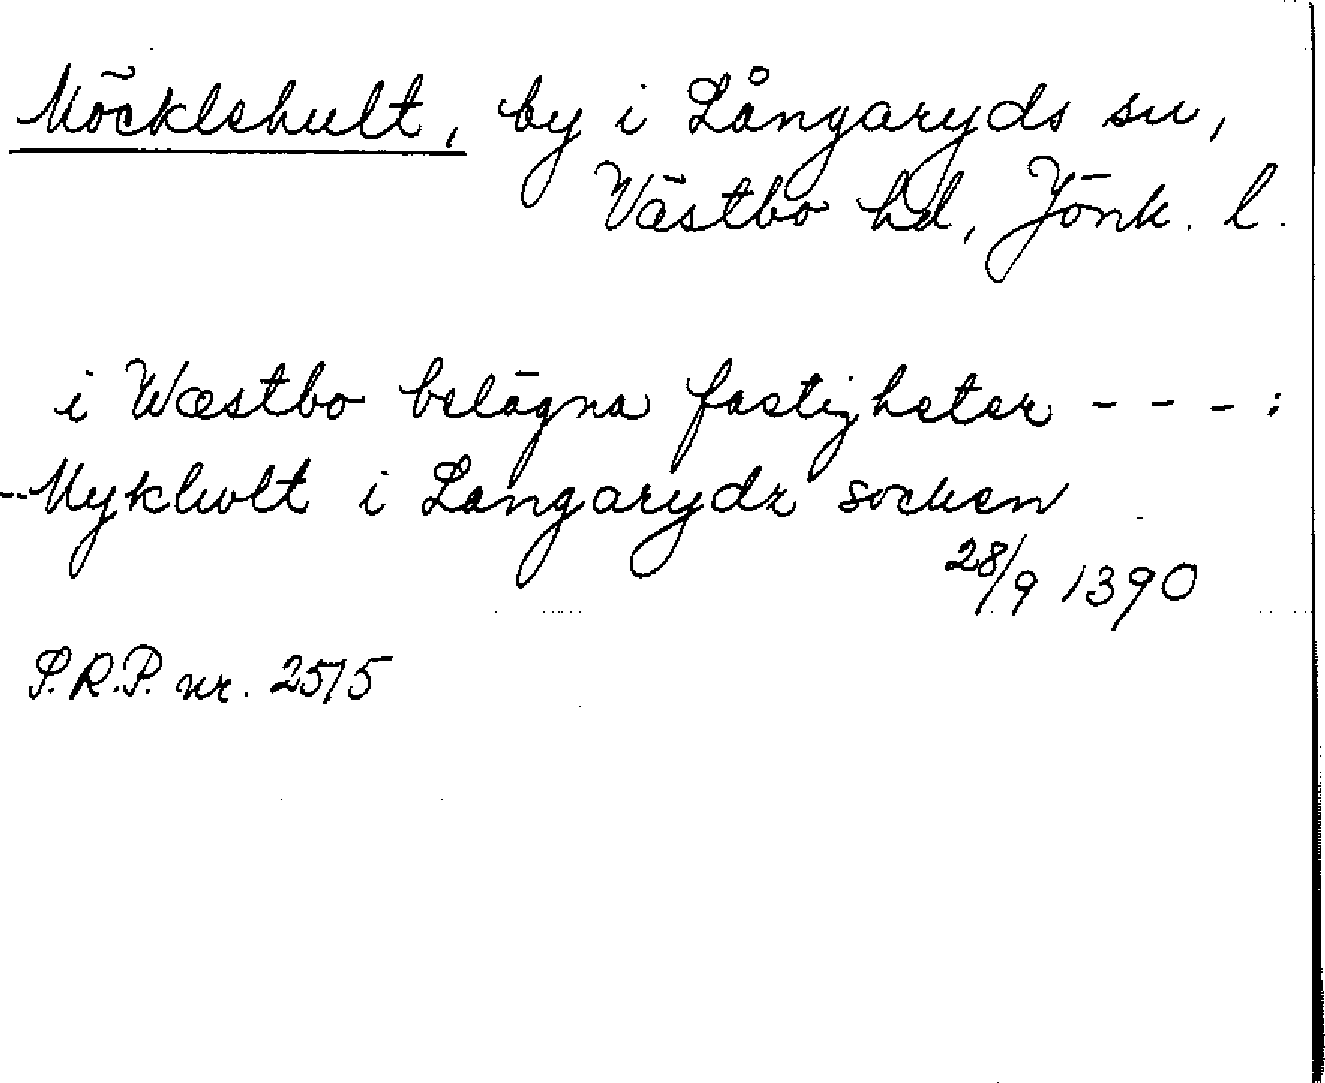 Möcklehult, by i Långaryds sn,
Västbo hd, Jönk. l.
i Wæstbo belägna fastigheter - - - :
-- Mykholt i Langarydz socken
28/9 1390
S.R.P. nr. 2515